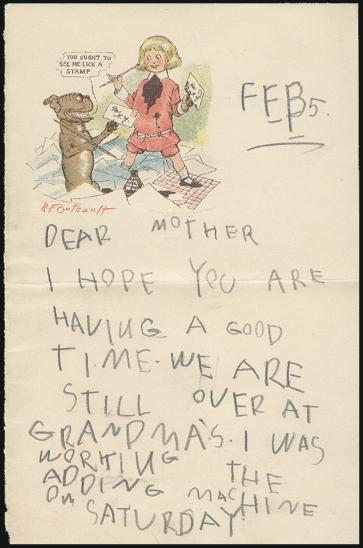 YOU OUGHT TO
SEE ME LICK A
STAMP
R.F. Outcault
FEB 5.
DEAR MOTHER
I HOPE YOU ARE
HAVING A GOOD
TIME. WE ARE
STILL OVER AT
GRANDMA'S. I WAS
WORKING THE
ADDING MACHINE
ON SATURDAY.